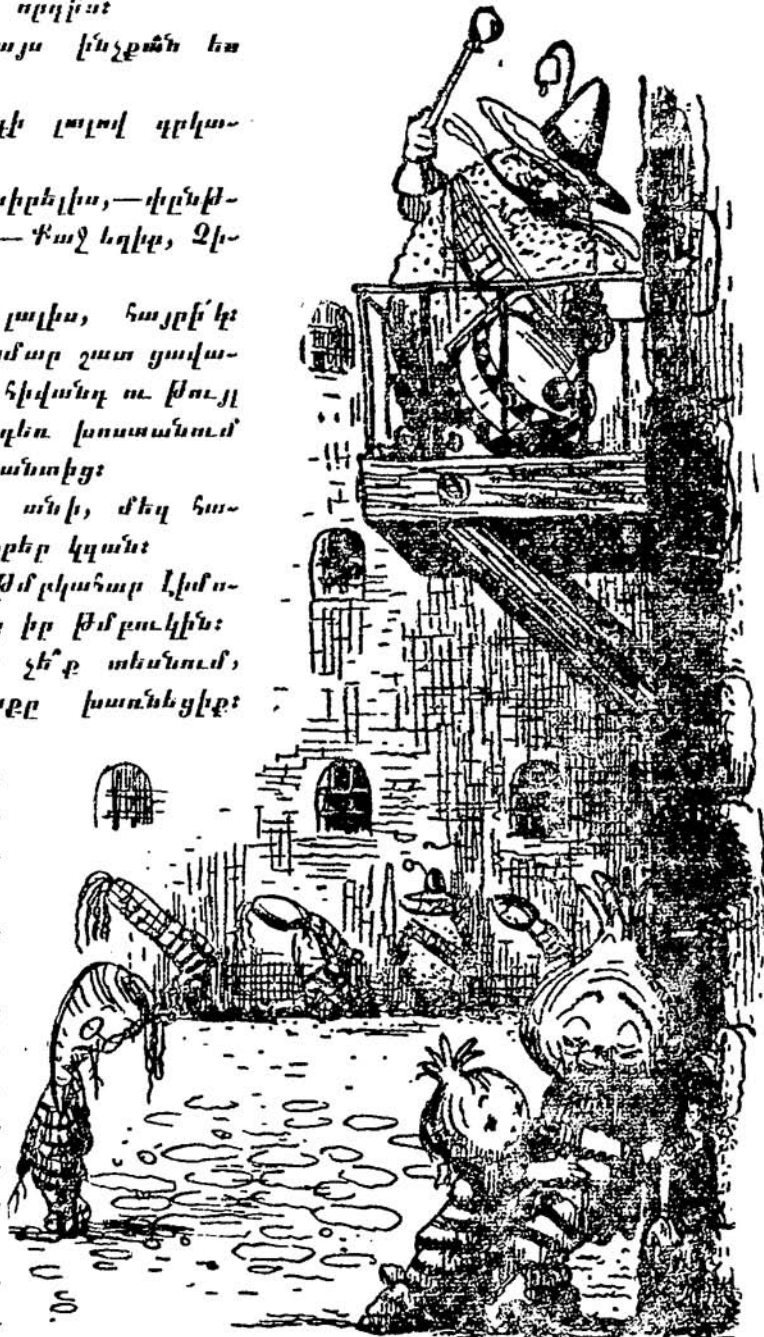 որդիս:
այս ինչքա՜ն ես
լալով գրկա-
սիրելիս,—փընթ-
— Քաջ եղիր, Չի-
լալիս, հայրի՛կ:
մար շատ ցավա-
հիվանդ ու թույլ
դեռ խոստանում
անտից:
անի, մեզ հա-
օրեր կգան:
Թմբկահար Լիմո-
իր թմբուկին:
չե՞ք տեսնում,
խառնեցիք: